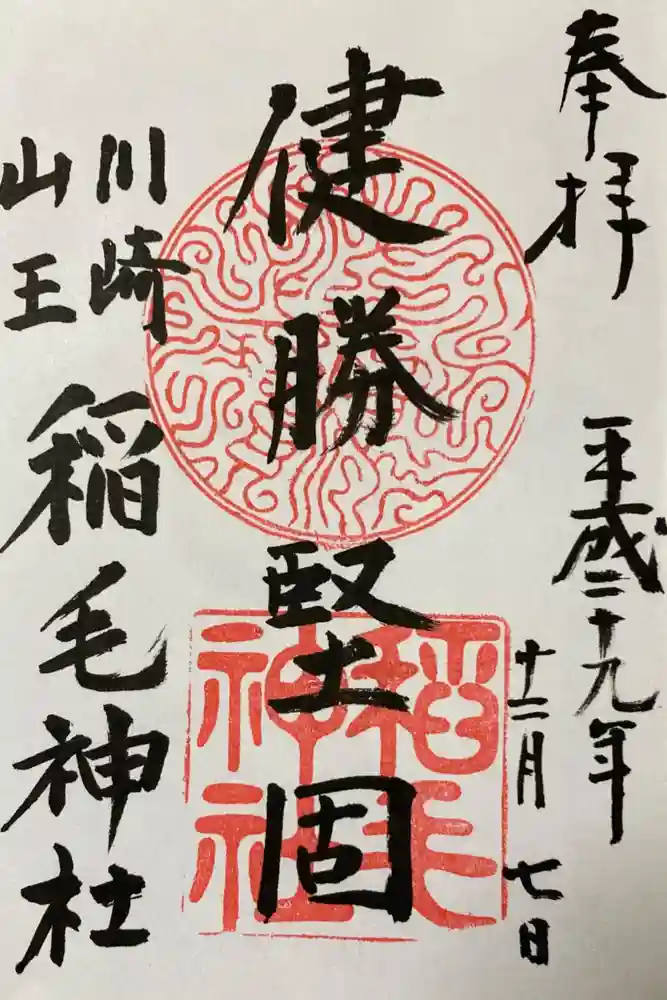 奉拝
平成二十九年
十二月七日
健勝堅固
川崎
山王
稲毛神社
稲毛
神社